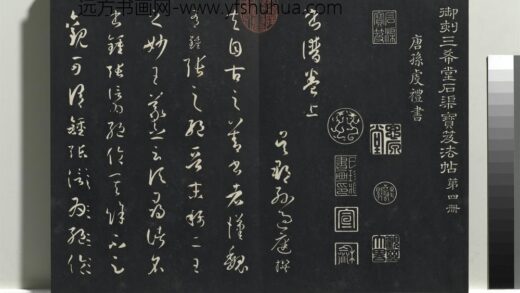 远方书画网-www.yfshuhua.com
御刻三希堂石渠寶笈法帖 第四册
唐孫虔禮書
宣
龢
書譜卷上
吳郡孫過庭撰
夫自古之善書者漢魏
有鍾張之絕晉末稱二王
之妙王羲之云頃尋諸名
書鍾張信為絕倫其餘不足
觀可謂鍾張云沒而羲獻